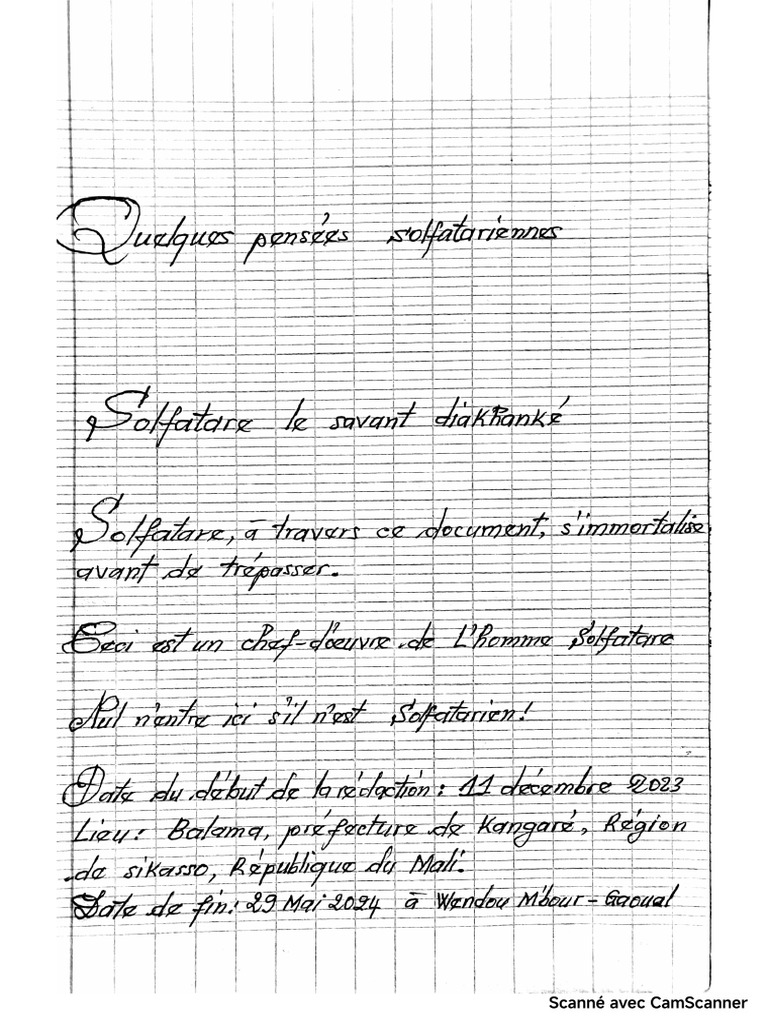 Quelques pensées solfatariennes
Solfatare le savant diakhanké
Solfatare, à travers ce document, s'immortalise
avant de trépasser.
Ceci est un chef-d'œuvre de L'homme Solfatare
Nul n'entre ici s'il n'est Solfatarien!
Date du début de la rédaction: 11 décembre 2023
Lieu: Balama, préfecture de Kangaré, Région
de sikasso, République du Mali.
Date de fin: 29 Mai 2024 à Wendou M'bour-Gaoual
Scanné avec CamScanner